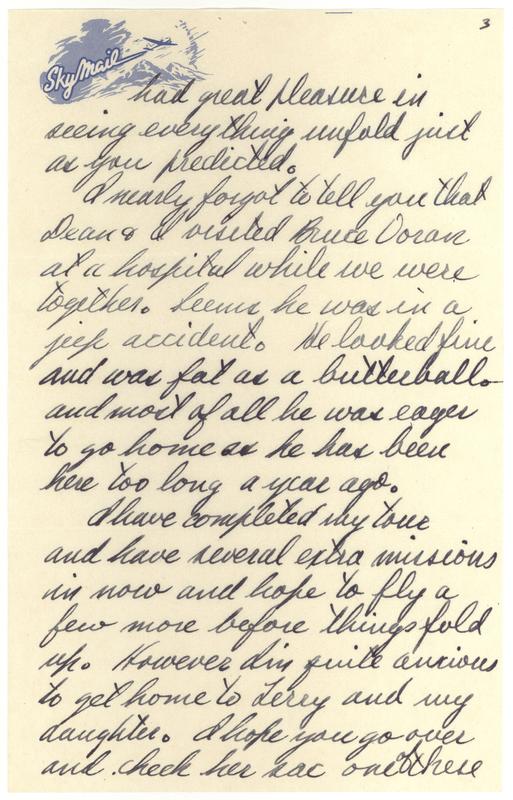 3
SkyMail
had great pleasure in
seeing everything unfold just
as you predicted.
I nearly forgot to tell you that
Dean & I visited Bruce Voran
at a hospital while we were
together. Seems he was in a
jeep accident. He looked fine
and was fat as a butterball
and most of all he was eager
to go home as he has been
here too long a year ago.
I have completed my tour
and have several extra missions
in now and hope to fly a
few more before things fold
up. However I'm quite anxious
to get home to Jerry and my
daughter. I hope you go over
and check her sac one of these